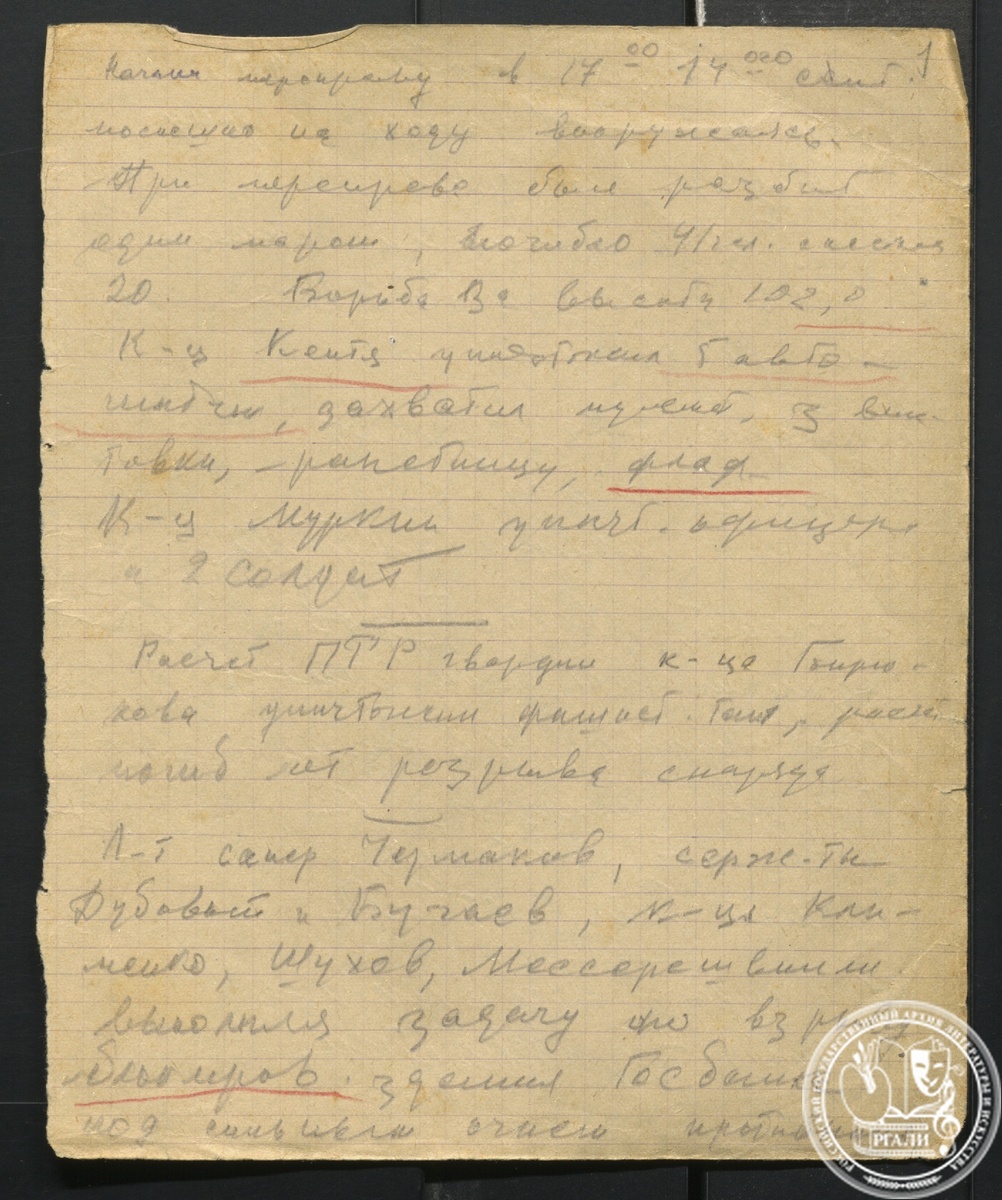 1
Начали переправу в 17 00 14 ого сент.
поспешно на ходу вооружаясь.
При переправе был разбит
один паром, погибло 41 чел. спасены
20. Борьба за высоту 102,0
К-ц Кентя уничтожил 5 авто-
матчи, захватил пулемет, 3 вин-
товки, ракетницу, флаг
К-ц Муркин уничт. офицера
и 2 солдат
Расчет ПТР гвардии к-ца
кова уничтожил фашист. танк, расчет
погиб от разрыва снаряда
Л-т сапер Чермаков, серж-ты
Дубовый и Бугаев, к-цы Кли-
менко, Шухов, Мессерешвили
выполняя задачу по взрыву
здания Госбанка
под сильным огнем
РОССИЙСКИЙ ГОСУДАРСТВЕННЫЙ АРХИВ ЛИТЕРАТУРЫ И ИСКУССТВА
РГАЛИ